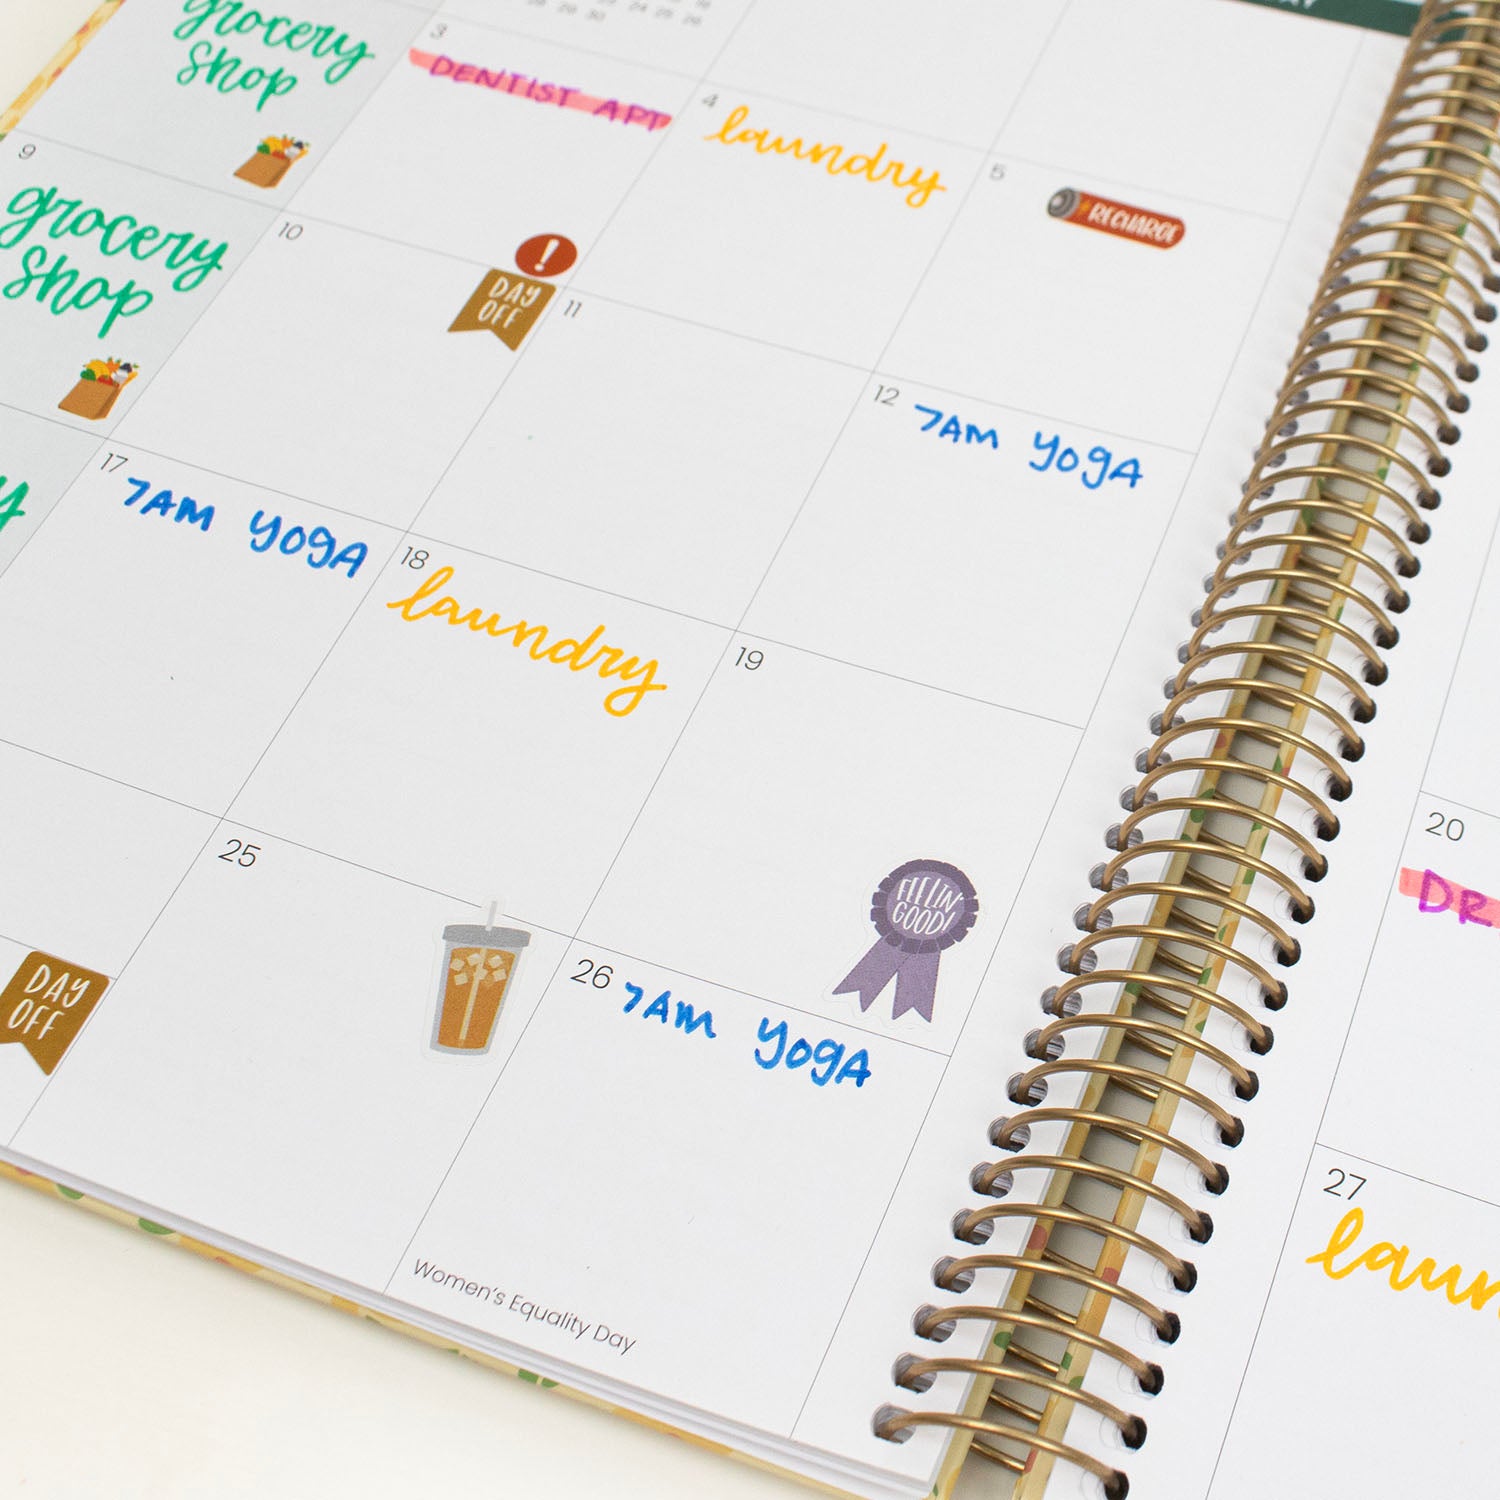 grocery
shop
28 29 30
23 24 25 26
3
DENTIST APT
4
laundry
5
RECHARGE
9
grocery
shop
10
!
DAY
OFF
11
12
7AM YOGA
17
7AM YOGA
18
laundry
19
FEELIN'
GOOD!
20
DR
25
26
7AM YOGA
DAY
OFF
Women's Equality Day
27
laun